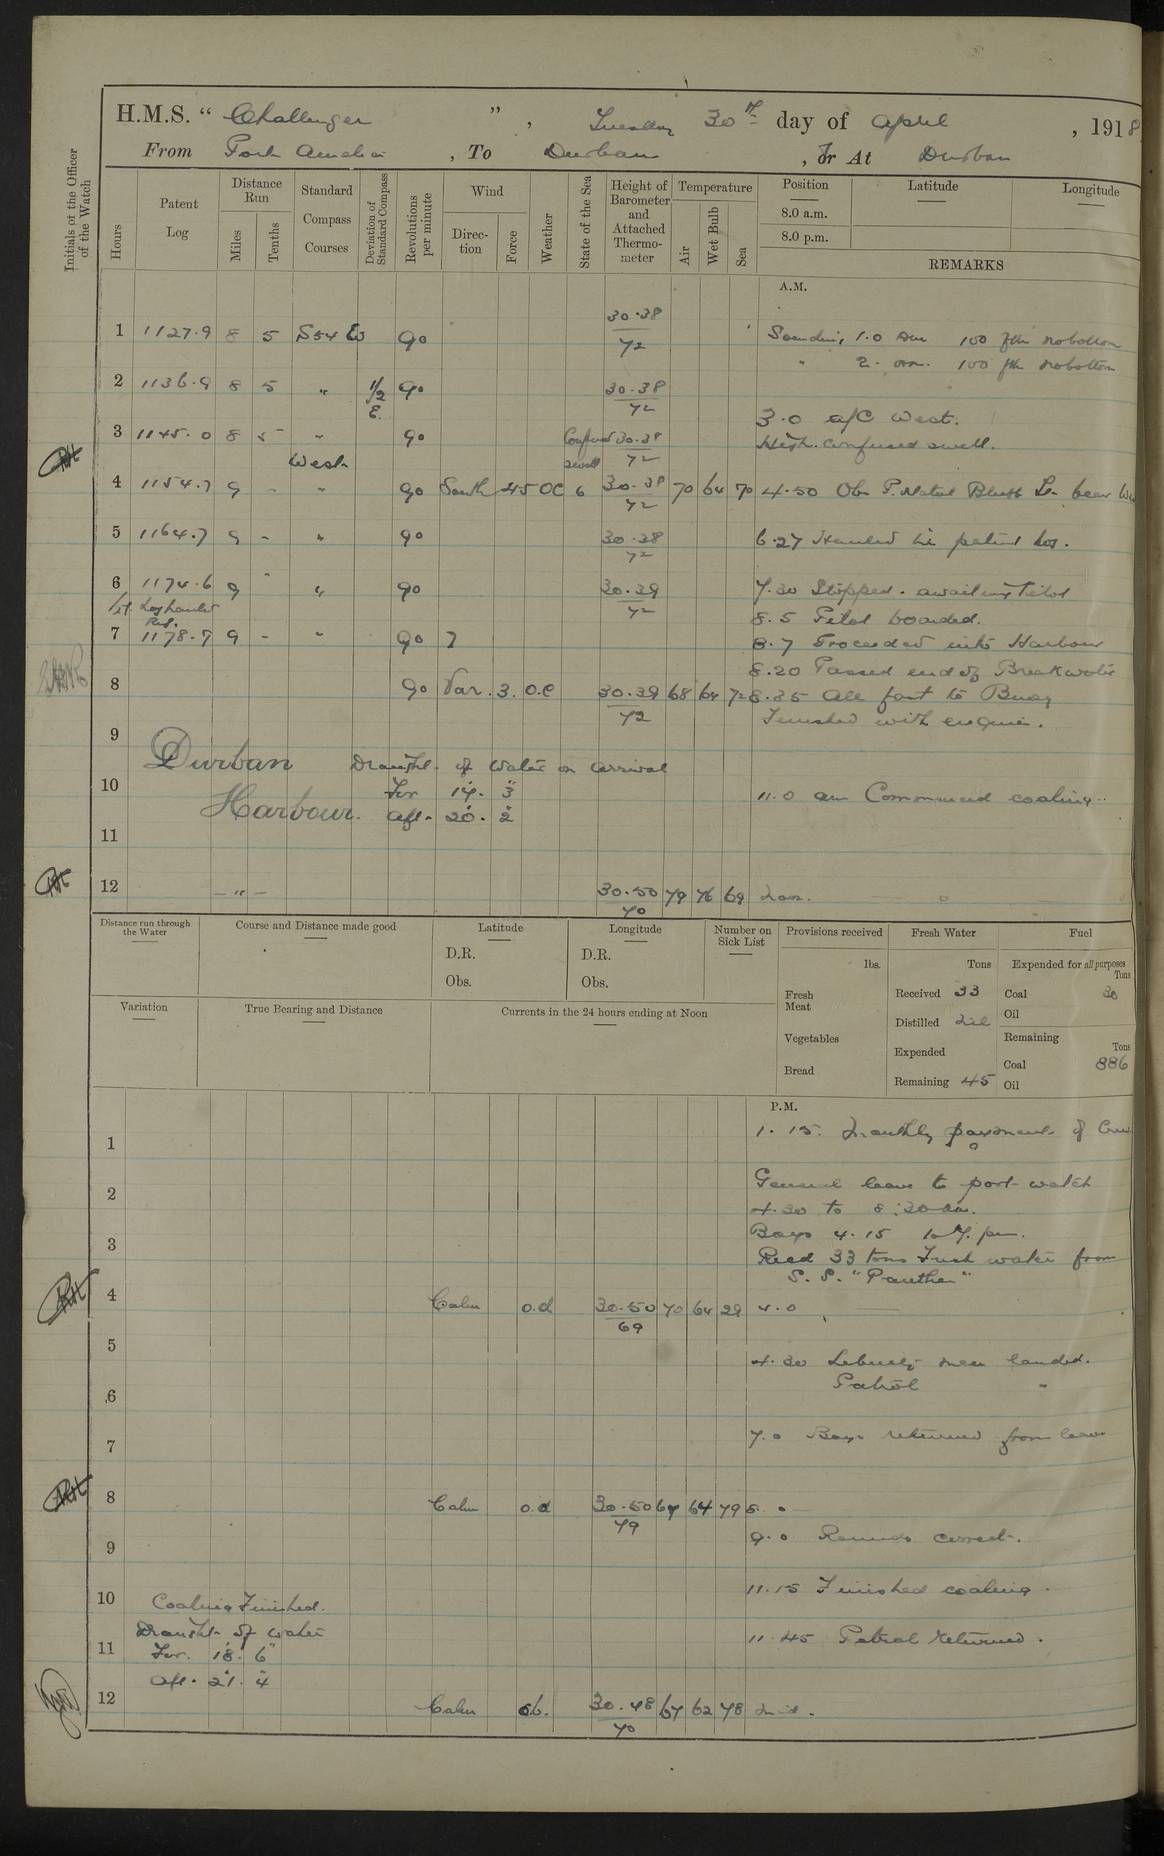 H.M.S. " Challenger ", Tuesday 30th day of April, 1918
From Port Amelia, To Durban, Or At Durban
Initials of the Officer of the Watch
Hours
Patent Log
Distance Run
Miles
Tenths
Standard Compass Courses
Deviation of Standard Compass
Revolutions per minute
Wind
Direction
Force
Weather
State of the Sea
Height of Barometer and Attached Thermometer
Temperature
Air
Wet Bulb
Sea
Position
Latitude
Longitude
8.0 a.m.
8.0 p.m.
REMARKS
A.M.
1 1127.9 8 5 S54 W 90 30.38 72 Sounding 1.0 am 100 fth no bottom
" 2. am. 100 fth no bottom
2 1136.9 8 5 " 1/2 E. 90 30.38 72
3.0 a/c West.
3 1145.0 8 5 " 90 Confused swell 30.38 72 High confused swell.
West
4 1154.7 9 - " 90 South 45 OC 6 30.38 72 70 64 70 4.50 Obs P. Natal Bluff Lt. bear
5 1164.7 9 - " 90 30.38 72 6.27 Hauled in patent log.
6 1174.6 9 - " 90 30.39 72 7.30 Stopped. awaiting Pilot
Log hauled
8.5 Pilot boarded.
7 1178.7 9 - " 90 8.7 Proceeded into Harbour
8.20 Passed end of Breakwater
8 90 Var. 3. O.C 30.39 72 68 64 72 8.35 All fast to Buoy
Finished with engines.
9
Durban Draught of water on arrival
10 Harbour. For 17. 3" 11.0 am Commenced coaling.
Aft. 20. 2"
11
12 — " — 30.50 70 79 76 69 Noon.
Distance run through the Water
Course and Distance made good
Latitude
D.R.
Obs.
Longitude
D.R.
Obs.
Number on Sick List
Provisions received
lbs.
Fresh Meat
Vegetables
Bread
Fresh Water
Tons
Received 33
Distilled Nil
Expended
Remaining 45
Fuel
Expended for all purposes
Tons
Coal 30
Oil
Remaining
Tons
Coal 886
Oil
Variation
True Bearing and Distance
Currents in the 24 hours ending at Noon
P.M.
1 1.15. Monthly payment of Crew
General leave to port watch
2 4.30 to 8.30 am.
Boys 4.15 to 7. pm.
3 Recd 33 tons Fresh water from
S.S. "Panther"
4 Calm o.d 30.50 69 70 64 29 4.0
5 4.30 Liberty men landed.
Patrol "
6
7 7.0 Boys returned from leave
8 Calm o.d 30.50 79 67 64 79 8.0
9.0 Rounds correct.
9
11.15 Finished coaling.
10 Coaling Finished.
Draught of water
11 For. 18. 6" 11.45 Patrol returned.
Aft. 21. 4"
12 Calm ob. 30.48 70 67 62 78 Mid.